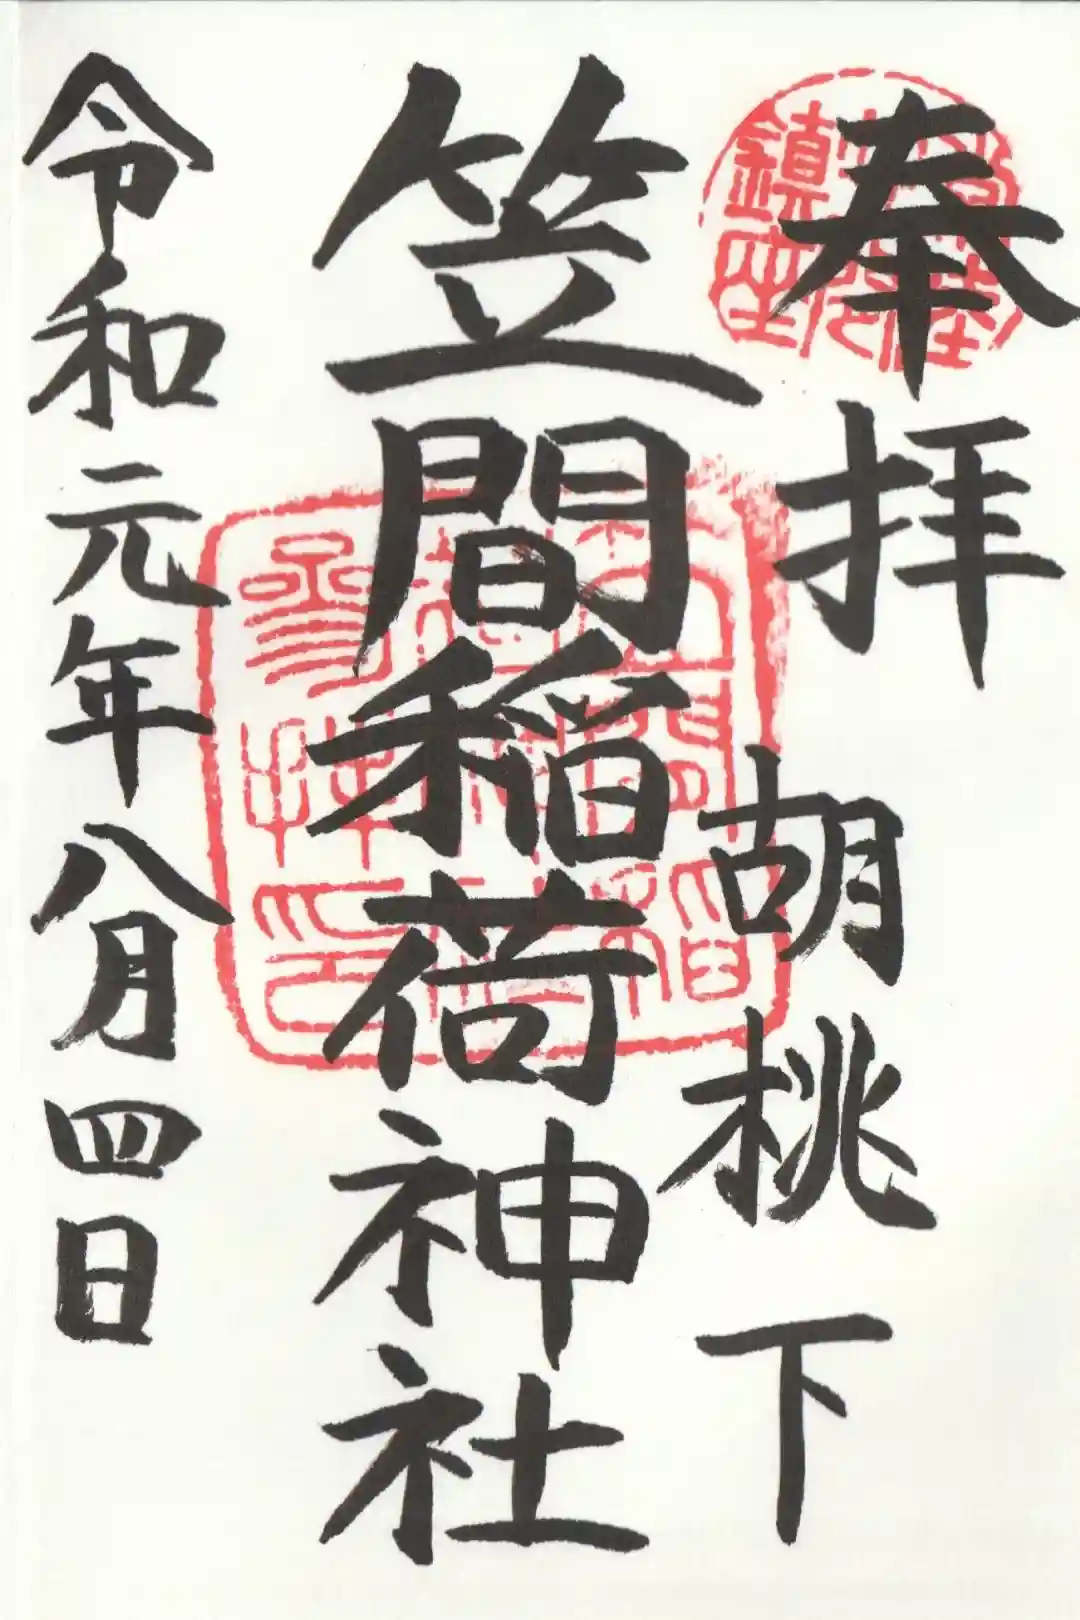 奉拝
胡桃下
笠間稲荷神社
令和元年八月四日
鎮座